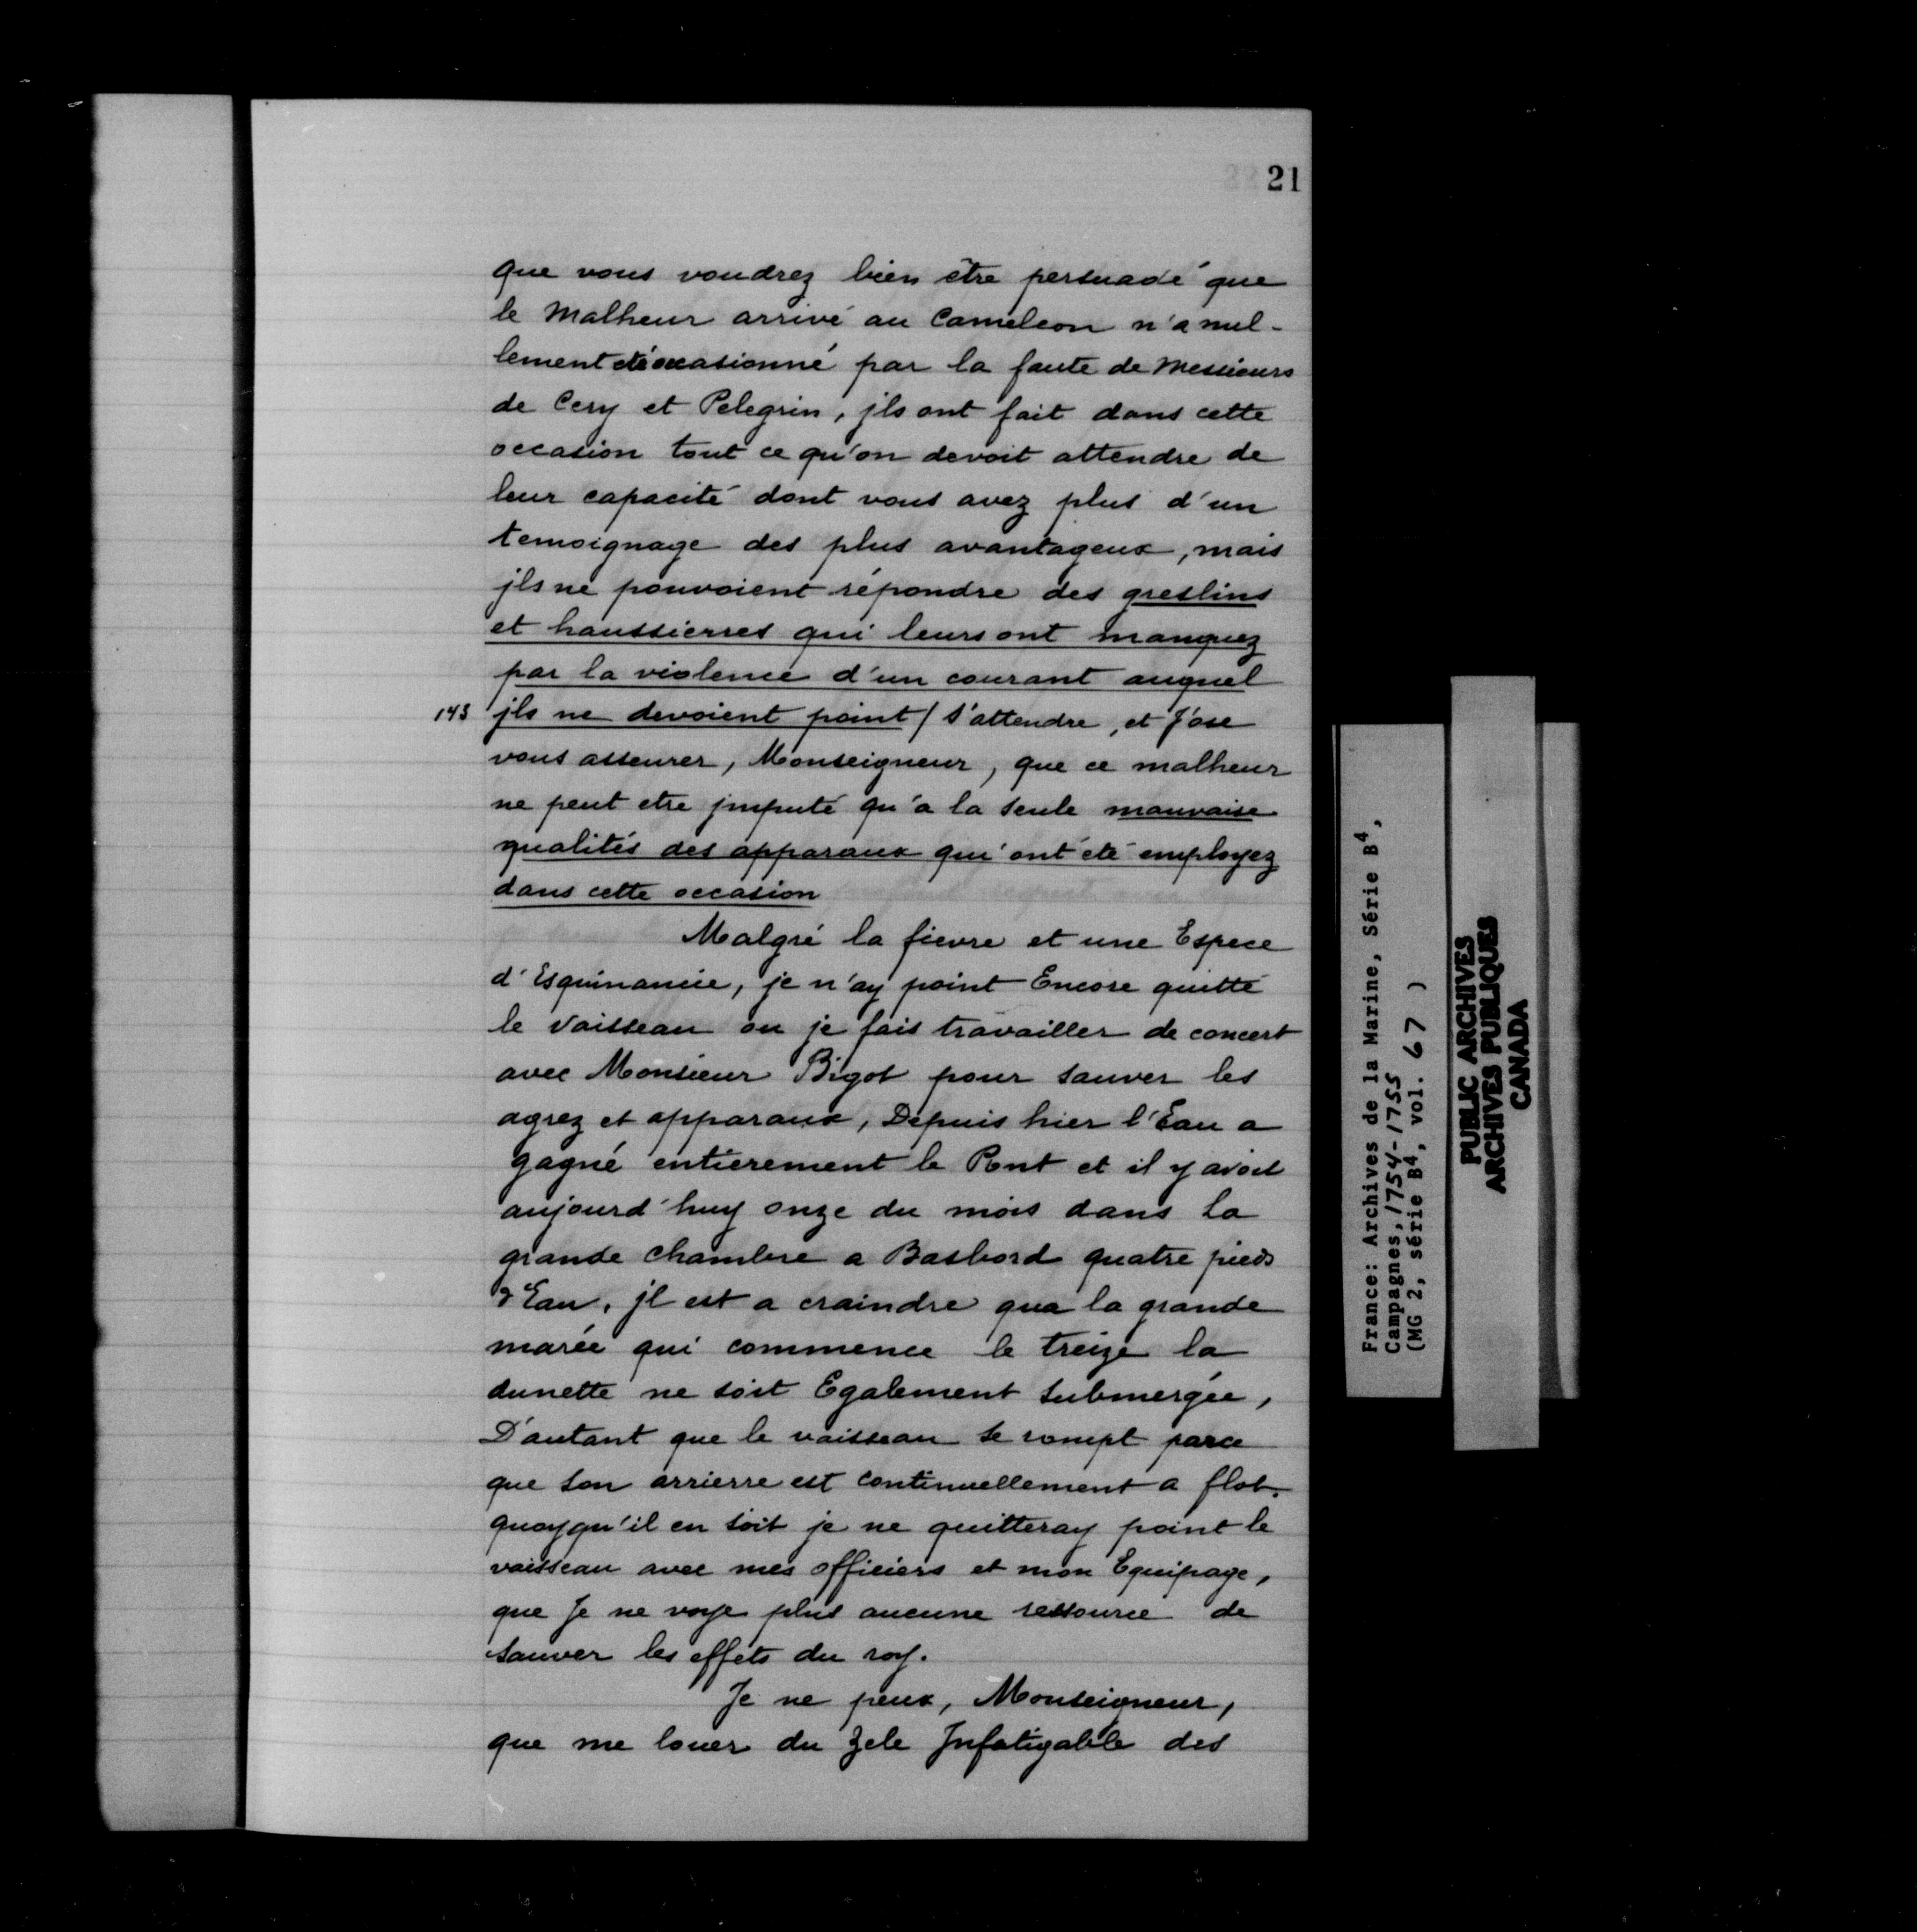 21
que vous voudrez bien être persuadé que
le Malheur arrivé au Cameleon n'a nul-
lement été occasionné par la faute de Messieurs
de Cery et Pelegrin, jls ont fait dans cette
occasion tout ce qu'on devoit attendre de
leur capacité dont vous avez plus d'un
temoignage des plus avantageux, mais
jls ne pouvoient répondre des greslins
et haussierres qui leurs ont manquez
par la violence d'un courant auquel
143 jls ne devoient point / s'attendre, et J'ose
vous asseurer, Monseigneur, que ce malheur
ne peut etre jmputé qu'a la seule mauvaise
qualités des apparaux qui ont été employez
dans cette occasion
Malgré la fievre et une Espece
d'Esquinancie, je n'ay point Encore quitté
le Vaisseau ou je fais travailler de concert
avec Monsieur Bigot pour sauver les
agrez et apparaux, Depuis hier l'Eau a
gagné entierement le Pont et il y avoit
aujourd'huy onze du mois dans la
grande Chambre a Basbord quatre pieds
d'Eau, jl est a craindre qua la grande
marée qui commence le treize la
dunette ne soit Egalement submergée,
D'autant que le vaisseau se rompt parce
que son arrierre est continuellement a flot.
quoyqu'il en soit je ne quitteray point le
vaisseau avec mes officiers et mon Equipage,
que Je ne voye plus aucune ressource de
sauver les effets du roy.
Je ne peux, Monseigneur,
que me louer du Zele Jnfatigable des
France: Archives de la Marine, Série B4,
Campagnes, 1754-1755
(MG 2, série B4, vol. 67 )
PUBLIC ARCHIVES
ARCHIVES PUBLIQUES
CANADA